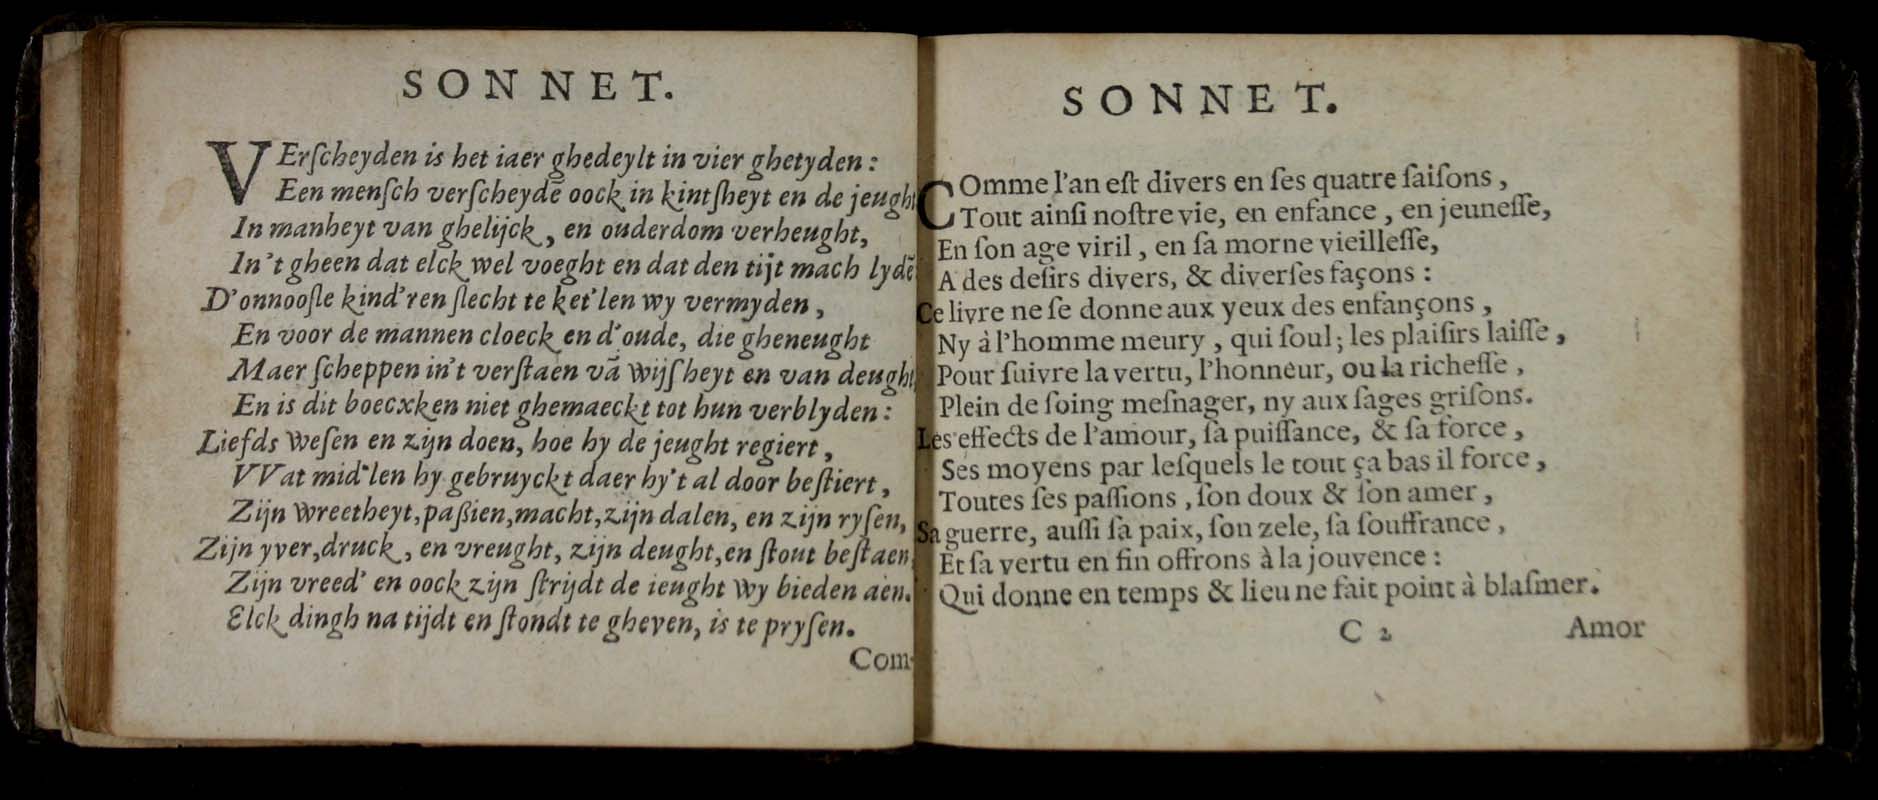 SONNET.
VErſcheyden is het iaer ghedeylt in vier ghetyden:
Een menſch verſcheydē oock in kintſheyt en de jeught
In manheyt van ghelijck, en ouderdom verheught,
In't gheen dat elck wel voeght en dat den tijt mach lydē
D'onnooſle kind'ren ſlecht te ket'len wy vermyden,
En voor de mannen cloeck en d'oude, die gheneught
Maer ſcheppen in't verſtaen vā wijſheyt en van deught,
En is dit boecxken niet ghemaeckt tot hun verblyden:
Liefds weſen en zijn doen, hoe hy de jeught regiert,
VVat mid'len hy gebruyckt daer hy't al door beſtiert,
Zijn wreetheyt, paßien, macht, zijn dalen, en zijn ryſen,
Zijn yver, druck, en vreught, zijn deught, en ſtout beſtaen,
Zijn vreed' en oock zijn ſtrijdt de ieught wy bieden aen.
Elck dingh na tijdt en ſtondt te gheven, is te pryſen.
Com-
SONNET.
COmme l'an eſt divers en ſes quatre ſaiſons,
Tout ainſi noſtre vie, en enfance, en jeuneſſe,
En ſon age viril, en ſa morne vieilleſſe,
A des deſirs divers, & diverſes façons:
Ce livre ne ſe donne aux yeux des enfançons,
Ny à l'homme meury, qui ſoul; les plaiſirs laiſſe,
Pour ſuivre la vertu, l'honneur, ou la richeſſe,
Plein de ſoing meſnager, ny aux ſages griſons.
Les effects de l'amour, ſa puiſſance, & ſa force,
Ses moyens par leſquels le tout ça bas il force,
Toutes ſes paſſions, ſon doux & ſon amer,
Sa guerre, auſſi ſa paix, ſon zele, ſa ſouffrance,
Et ſa vertu en fin offrons à la jouvence:
Qui donne en temps & lieu ne fait point à blaſmer.
C 2 Amor